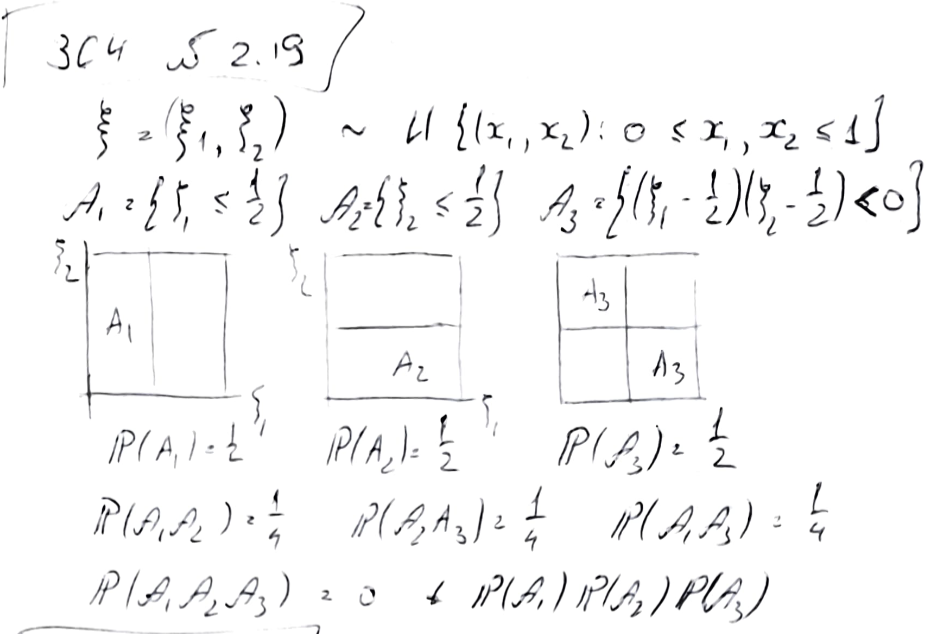 ЗСЧ № 2.19
ξ = (ξ₁, ξ₂) ~ U {(x₁, x₂): 0 ≤ x₁, x₂ ≤ 1}
A₁ = {ξ₁ ≤ 1/2} A₂ = {ξ₂ ≤ 1/2} A₃ = {(ξ₁ - 1/2)(ξ₂ - 1/2) < 0}
ξ₂ ξ₂ A₃
A₁ A₂ A₃
ξ₁ ξ₁
ℙ(A₁) = 1/2 ℙ(A₂) = 1/2 ℙ(A₃) = 1/2
ℙ(A₁A₂) = 1/4 ℙ(A₂A₃) = 1/4 ℙ(A₁A₃) = 1/4
ℙ(A₁A₂A₃) = 0 ≠ ℙ(A₁)ℙ(A₂)ℙ(A₃)